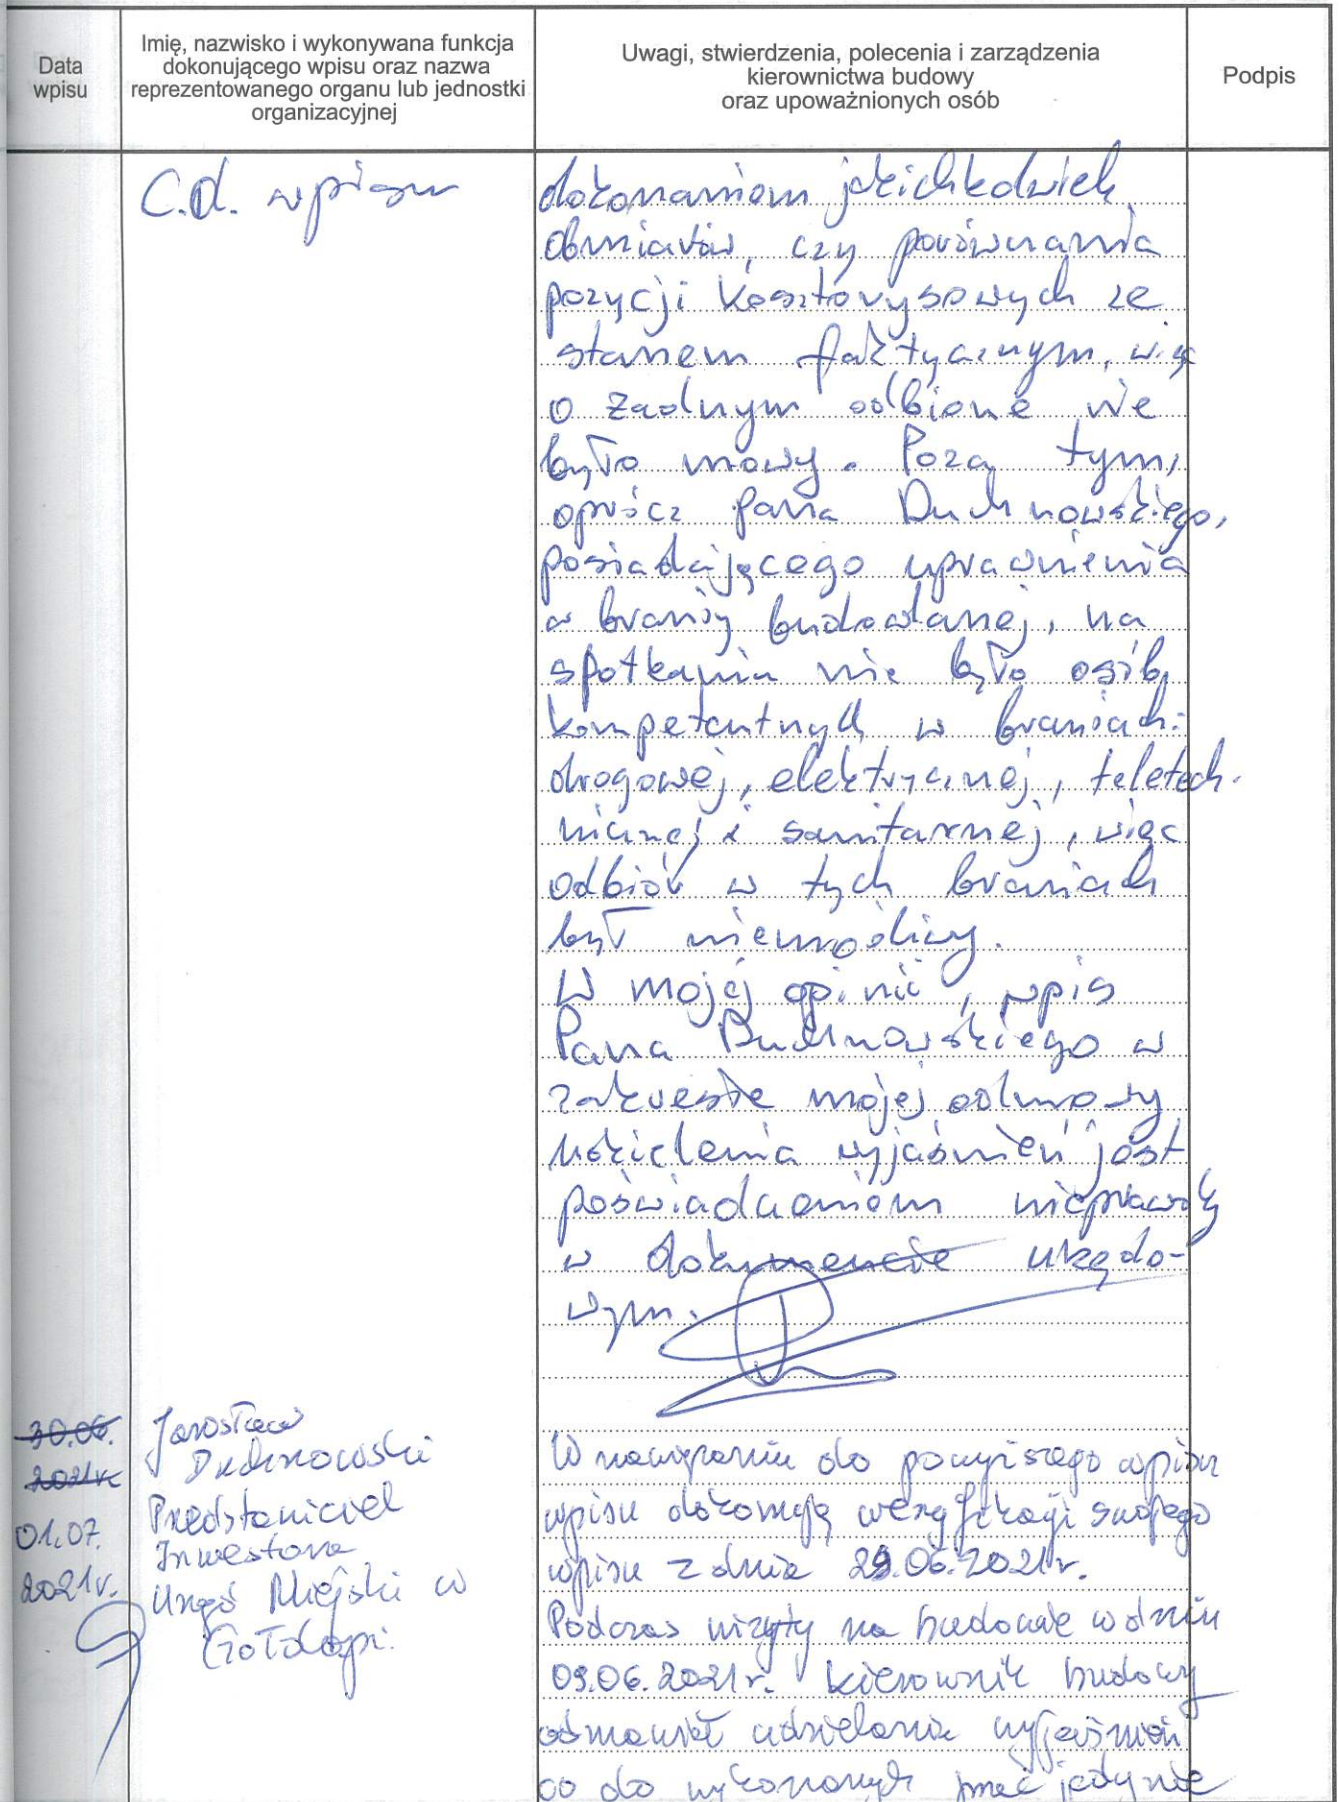 Data
wpisu
Imię, nazwisko i wykonywana funkcja
dokonującego wpisu oraz nazwa
reprezentowanego organu lub jednostki
organizacyjnej
Uwagi, stwierdzenia, polecenia i zarządzenia
kierownictwa budowy
oraz upoważnionych osób
Podpis
C.d. wpisu
dokonaniem jakichkolwiek
obmiarów, czy porównania
pozycji kosztorysowych ze
stanem faktycznym, więc
o żadnym odbiorze nie
było mowy. Poza tym,
oprócz Pana Duchnowskiego,
posiadającego uprawnienia
w branży budowlanej, na
spotkaniu nie było osób
kompetentnych w branżach:
drogowej, elektrycznej, teletech-
nicznej i sanitarnej, więc
odbiór w tych branżach
był niemożliwy.
W mojej opinii, wpis
Pana Duchnowskiego w
zakresie mojej odmowy
udzielenia wyjaśnień jest
poświadczeniem nieprawdy
w dokumencie urzędo-
wym.
30.06.
2021r.
01.07.
2021r.
Jarosław
Duchnowski
Przedstawiciel
Inwestora
Urząd Miejski w
Gołdapi.
W nawiązaniu do powyższego wpisu
wpisu dokonuję weryfikacji swojego
wpisu z dnia 29.06.2021r.
Podczas wizyty na budowie w dniu
09.06.2021r. kierownik budowy
odmawiał udzielania wyjaśnień
co do wykonanych prac jedynie